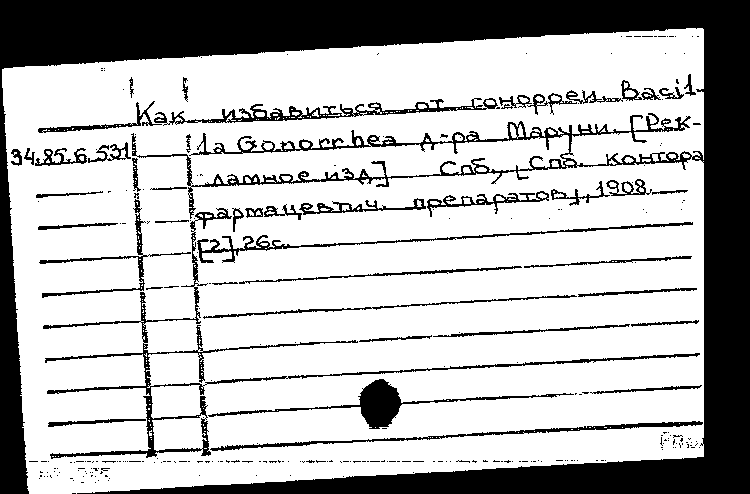 Как избавиться от гонорреи. Bacil-
34.85.6.531 la Gonorrhea д-ра Маруни. [Рек-
ламное изд] Спб., [Спб. контора
фармацевтич. препаратов], 1908.
[2], 26с.